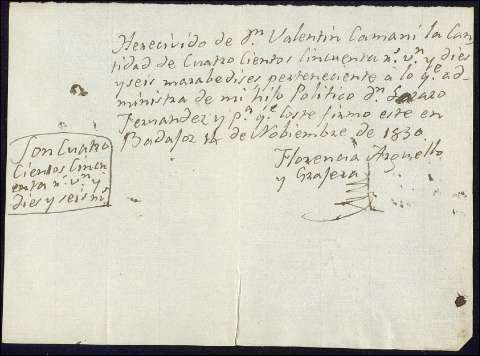 He recivido de Dn. Valentin Camani la Can-
tidad de Cuatro Cientos Cincuenta rs. vn. y dies
y seis marabedises perteneciente a lo qe. ad-
ministra de mi hijo Politico Dn. Lazaro
Fernandez y pa. qe. coste firmo este en
Badajoz 12 de Noviembre de 1830
Florencia Arguello
y Grajera
Son Cuatro
Cientos Cincu
enta rs. vn. y
dies y seis ms